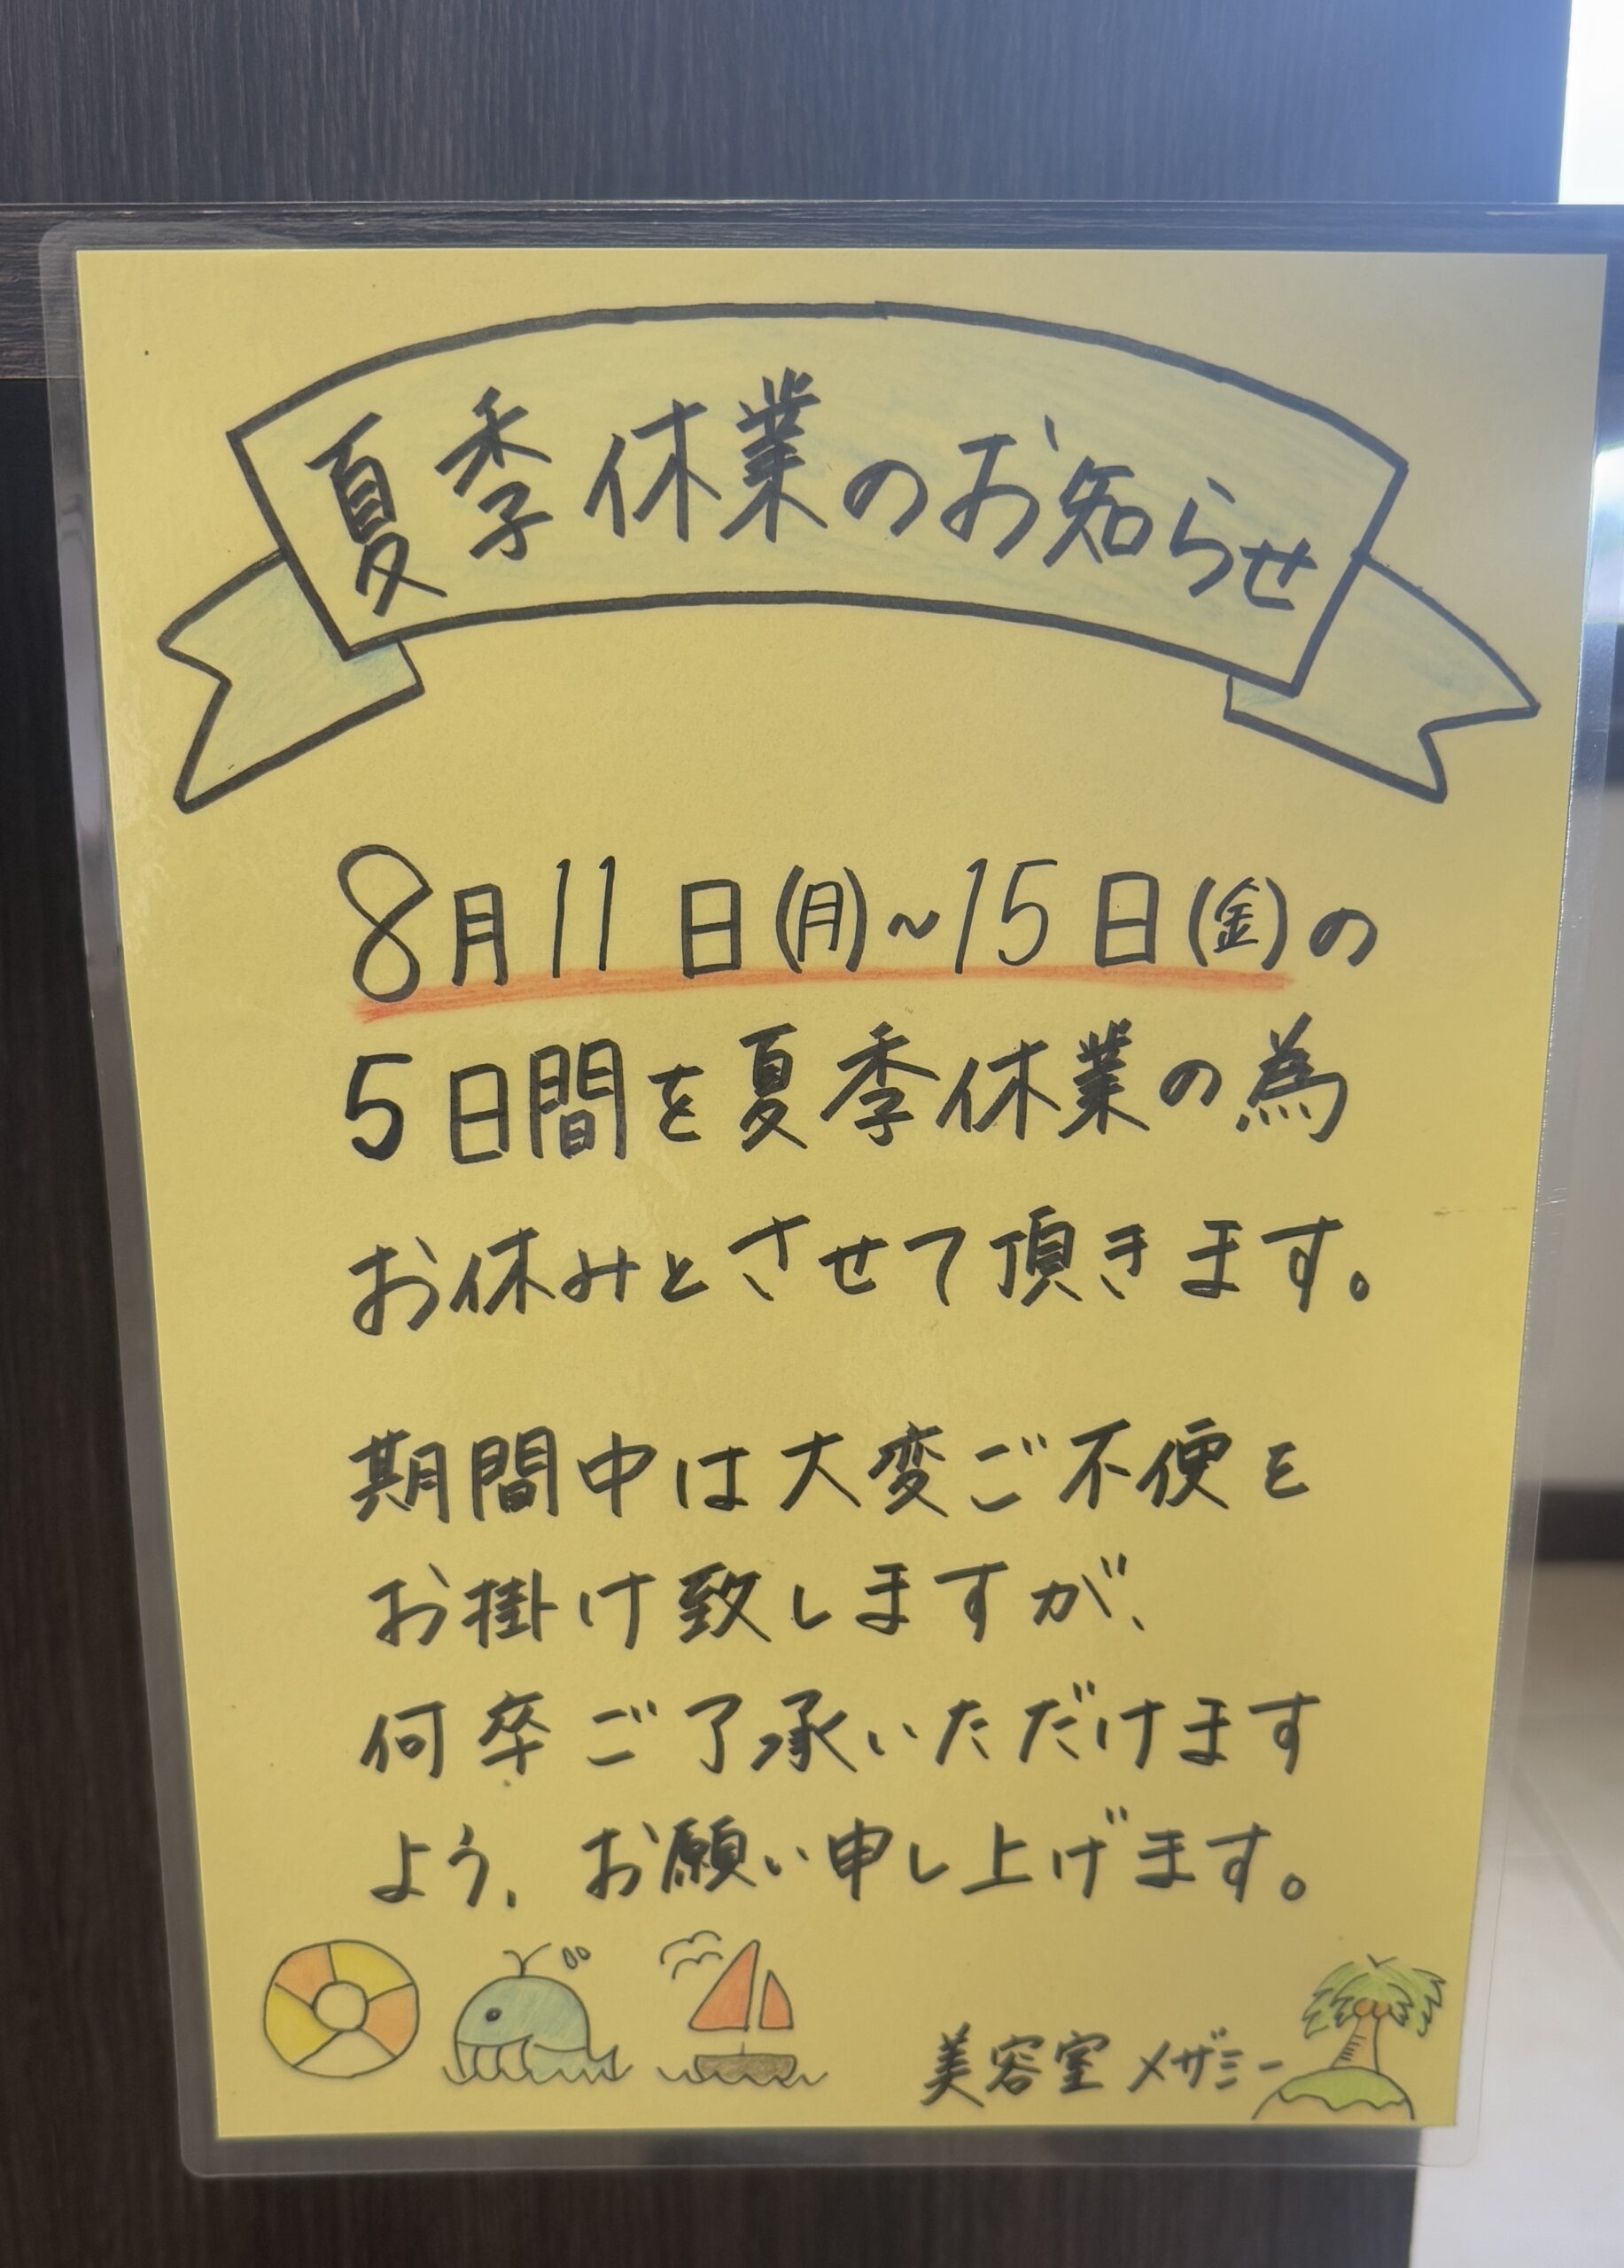 夏季休業のお知らせ
8月11日(月)~15日(金)の
5日間を夏季休業の為
お休みとさせて頂きます。
期間中は大変ご不便を
お掛け致しますが、
何卒ご了承いただけます
よう、お願い申し上げます。
美容室 メザミー